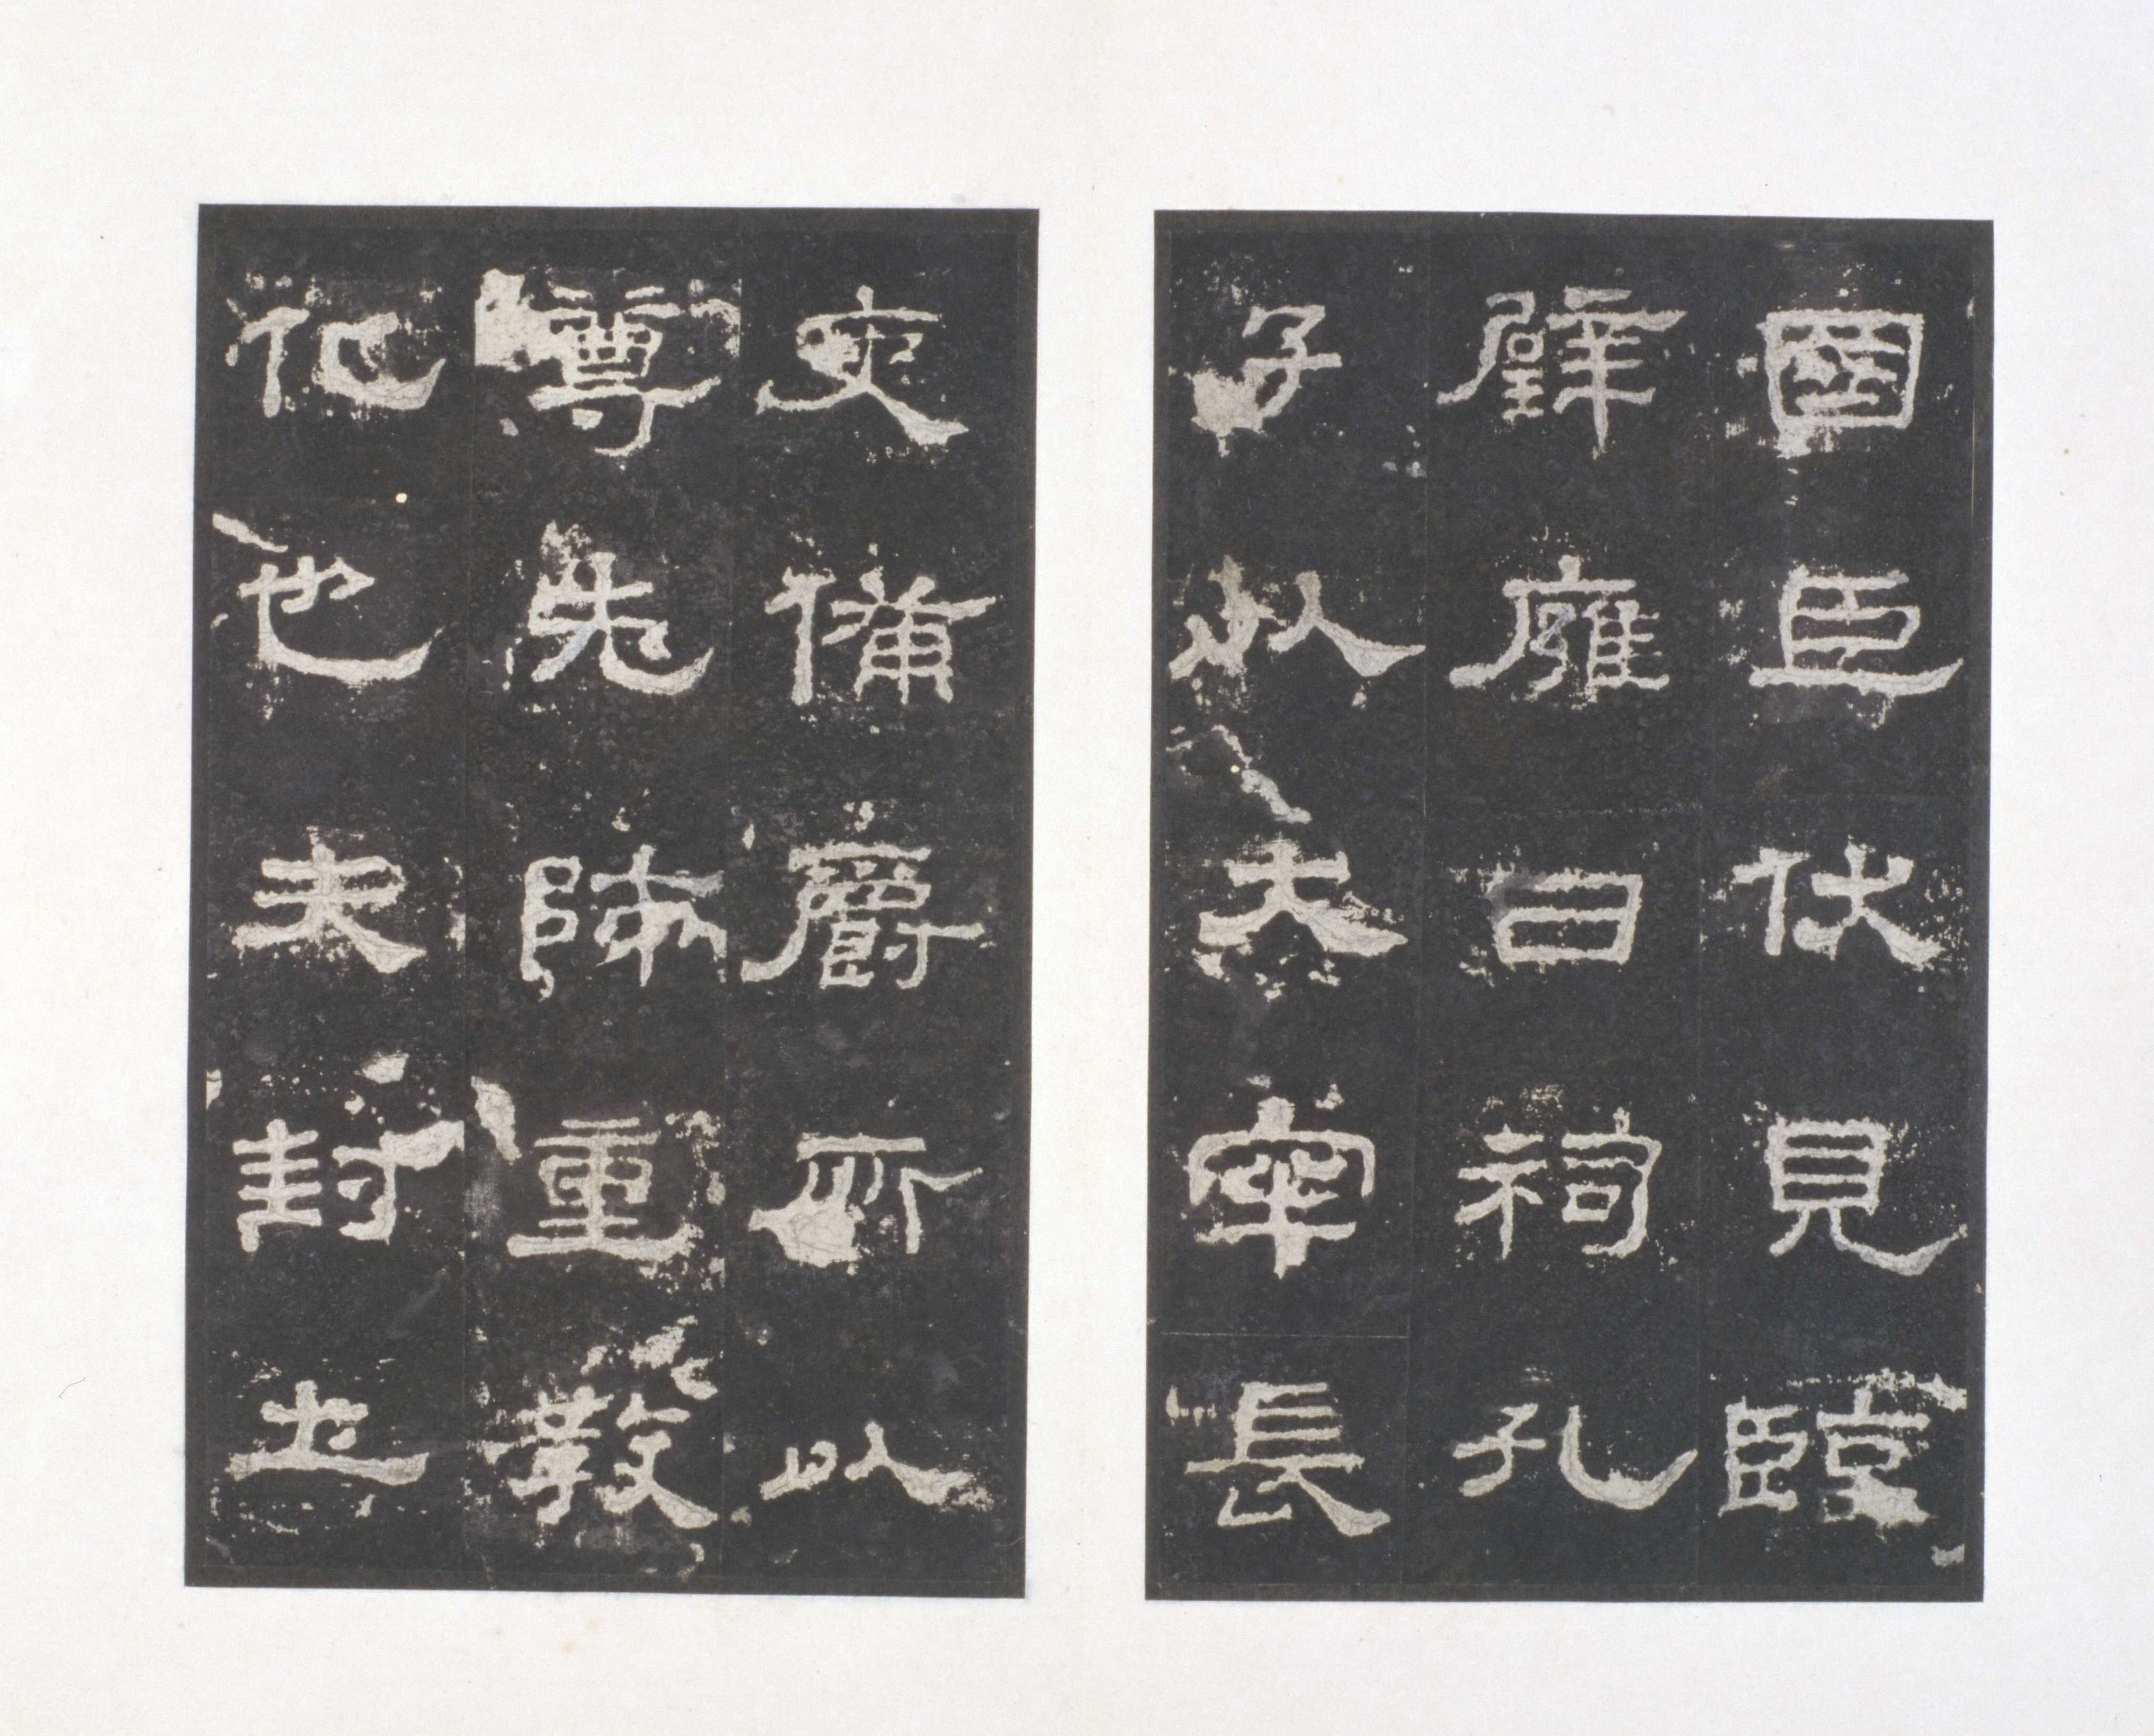 國臣伏見臨
辟廱日祠孔
子以大宰長
吏備爵所以
尊先師重教
化也夫封土